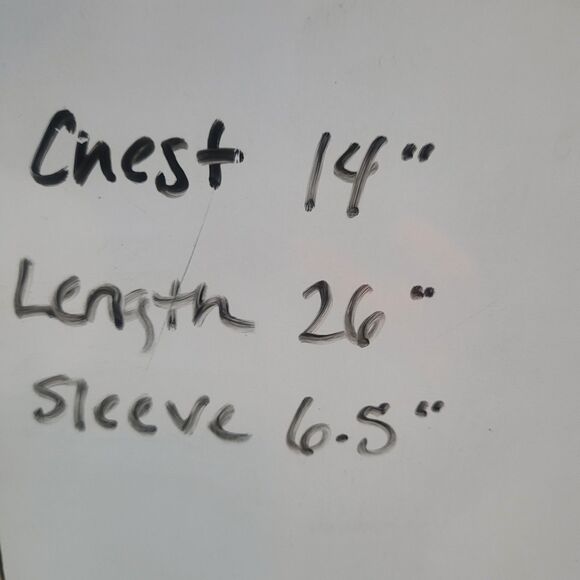 Chest 14"
Length 26"
Sleeve 6.5"